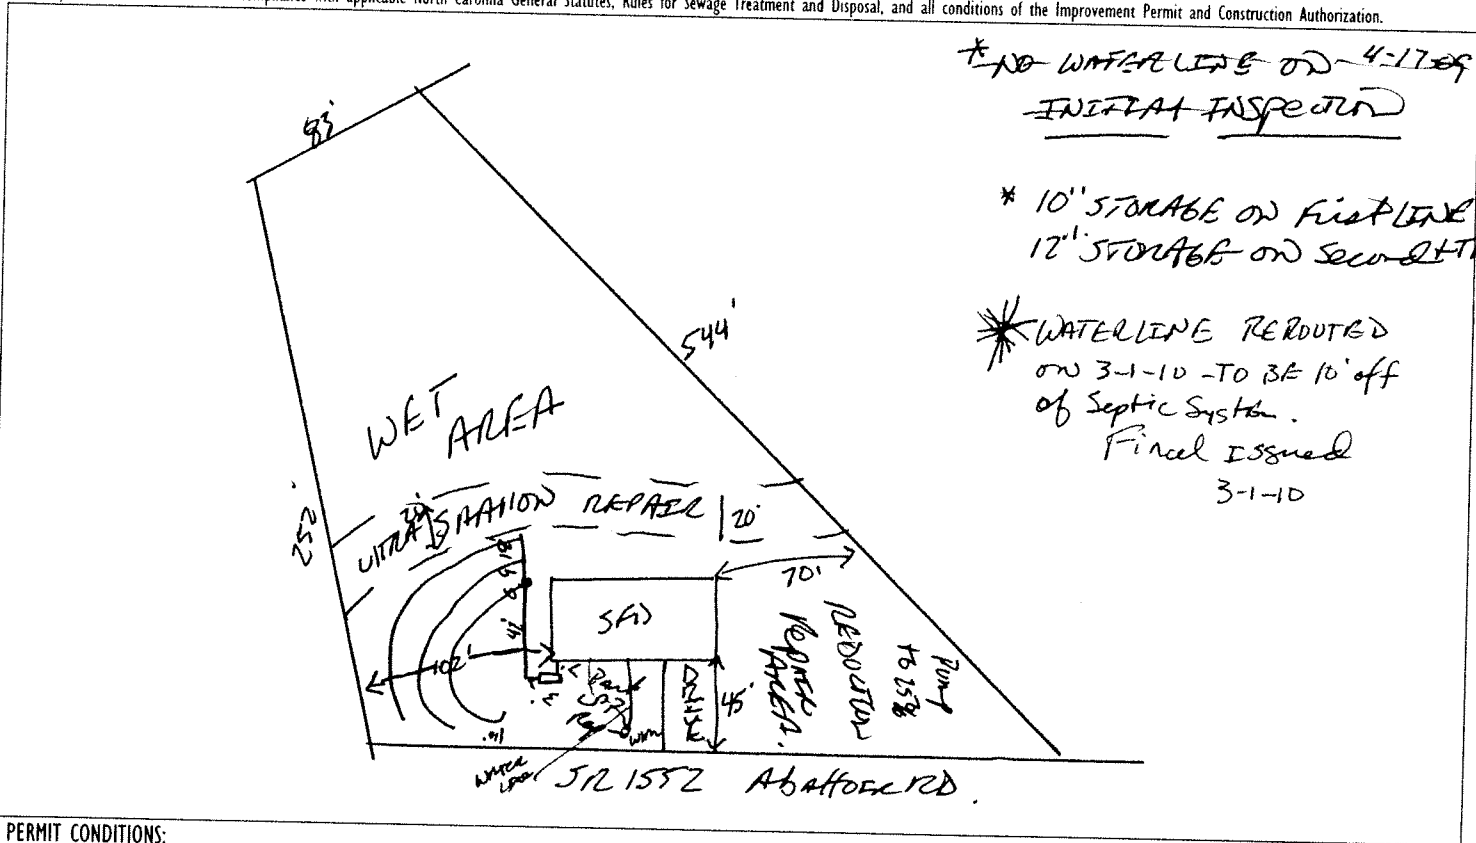 compliance with applicable North Carolina General Statutes, Rules for Sewage Treatment and Disposal, and all conditions of the Improvement Permit and Construction Authorization.
* NO WATERLINE ON 4-17-09
INITIAL INSPECTION
* 10" STORAGE ON First LINE
12" STORAGE ON Second +
* WATERLINE REROUTED
ON 3-1-10 - TO BE 10' off
of Septic System.
Final ISSUED
3-1-10
83'
544'
252'
WET
AREA
REPAIR
20'
20'
70'
SFD
102'
45'
DRIVE
REPAIR
AREA.
REDUCTION
Pump
to 25%
WATER
LINE
SR 1552
RD.
PERMIT CONDITIONS: